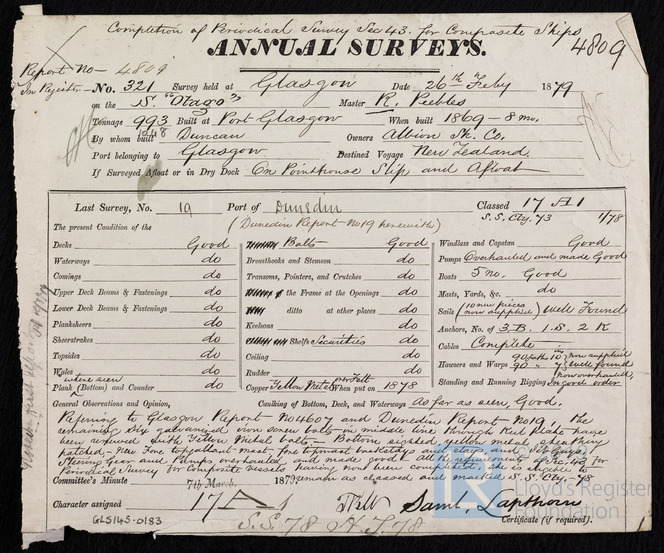 Completion of Periodical Survey Sec 43. for Composite Ships
ANNUAL SURVEYS.
4809
Report No 4809
In Register
No. 321 Survey held at Glasgow Date 26th Feby 1879
on the S. "Otago" Master R. Peebles
Tonnage 993 Built at Port Glasgow When built 1869 - 8 mo.
1048
By whom built Duncan Owners Albion Sh. Co.
Port belonging to Glasgow Destined Voyage New Zealand
If Surveyed Afloat or in Dry Dock On Pointhouse Slip and Afloat
Last Survey, No. 19 Port of Dunedin Classed 17 A 1
(Dunedin Report No 19 herewith) S.S. Cty. 73 1/78
The present Condition of the
Decks Good
Waterways do
Comings do
Upper Deck Beams & Fastenings do
Lower Deck Beams & Fastenings do
Planksheers do
Sheerstrakes do
Topsides do
Wales do
where seen
Plank (Bottom) and Counter do
Bolts Good
Breasthooks and Stemson do
Transoms, Pointers, and Crutches do
of the Frame at the Openings do
ditto at other places do
Keelsons do
Shelfs Securities do
Ceiling do
Rudder do
Copper Yellow Metal over Felt When put on 1878
Windlass and Capstan Good
Pumps Overhauled and made Good
Boats 5 no. Good
Masts, Yards, &c. do
Sails (10 new pieces now supplied) Well Found
Anchors, No. of 3 B. 1 S. 2 K
Cables Complete
Hawsers and Warps 90 fths 10 in now supplied
90 " 7 " well found
(now overhauled)
Standing and Running Rigging in good order
General Observations and Opinion, Caulking of Bottom, Deck, and Waterways As far as seen, Good.
Referring to Glasgow Report No 4607 and Dunedin Report No 19. The
remaining Six galvanised iron screw bolts in middle line through Keel plate have
been renewed with Yellow Metal bolts - Bottom sighted, yellow metal sheathing
patched - New Fore topgallant mast, fore topmast backstays and stays and
Steering Gear and Pumps overhauled, and made good. All Requirements of Sec. 43 for
Periodical Survey for Composite Vessels having now been completed, she is eligible to
remain as classed and marked S.S. 78
Committee's Minute 7th March 1879
Character assigned 17 A 1
S.S. 78
Saml. Lapthorn
Certificate (if required).
GLS145-0183
LR
Lloyd's Register
Foundation